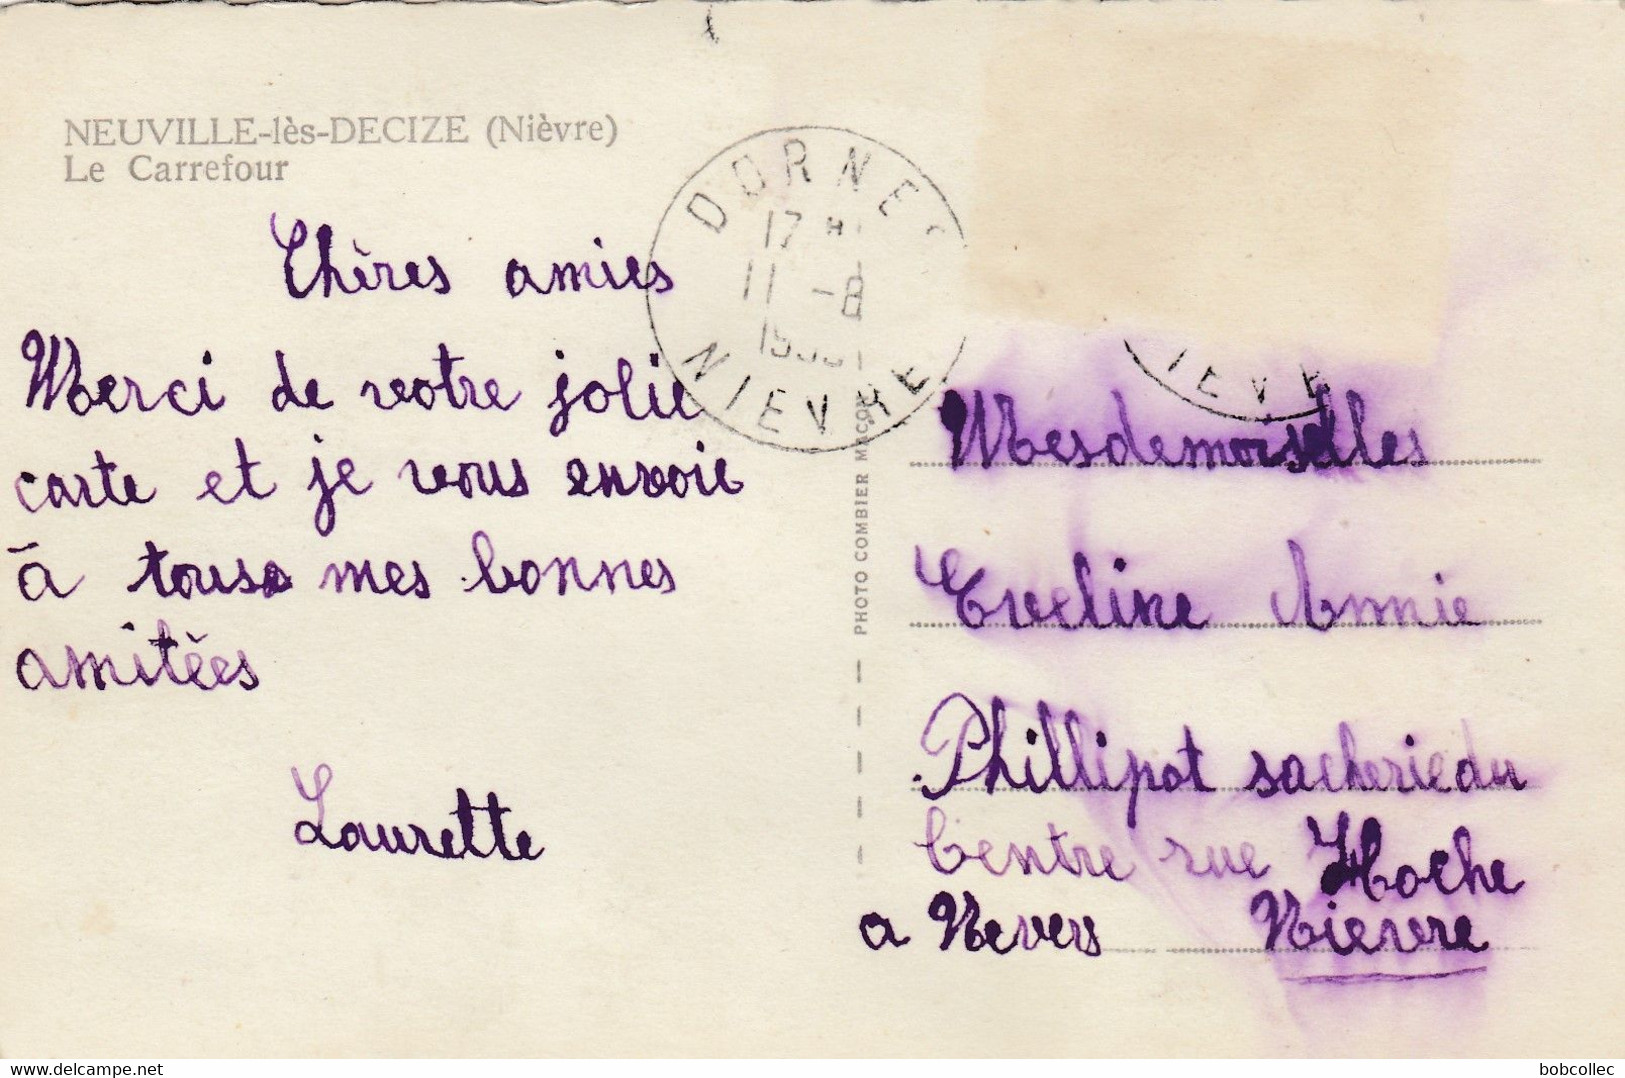 NEUVILLE-lès-DECIZE (Nièvre)
Le Carrefour
DORNES
17 H
11 -8
NIEVRE
IEVR
Chères amies
Merci de votre jolie
carte et je vous envoie
à tous mes bonnes
amitées
Laurette
PHOTO COMBIER MACON
Mesdemoiselles
Eveline Annie
Phillipot sacherie du
Centre rue Hoche
a Nevers Nievre
delcampe.net
bobcollec